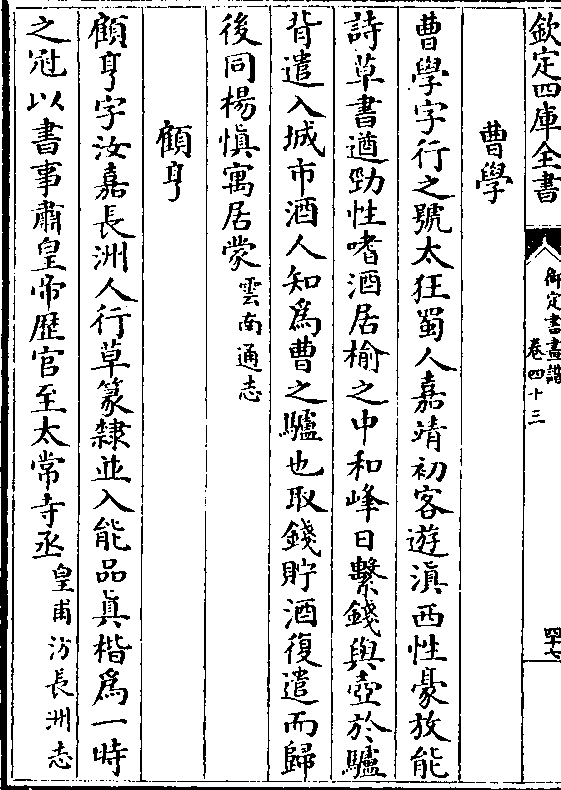 欽定四庫全書
御定書畫譜
卷四十三
四十七
曹學
曹學字行之號太狂蜀人嘉靖初客遊滇西性豪放能
詩草書遒勁性嗜酒居榆之中和峰日繫錢與壺於驢
背遣入城市酒人知為曹之驢也取錢貯酒復遣而歸
後同楊慎寓居蒙雲南通志
顧亨
顧亨字汝嘉長洲人行草篆隸並入能品真楷為一時
之冠以書事肅皇帝歷官至太常寺丞皇甫汸長洲志